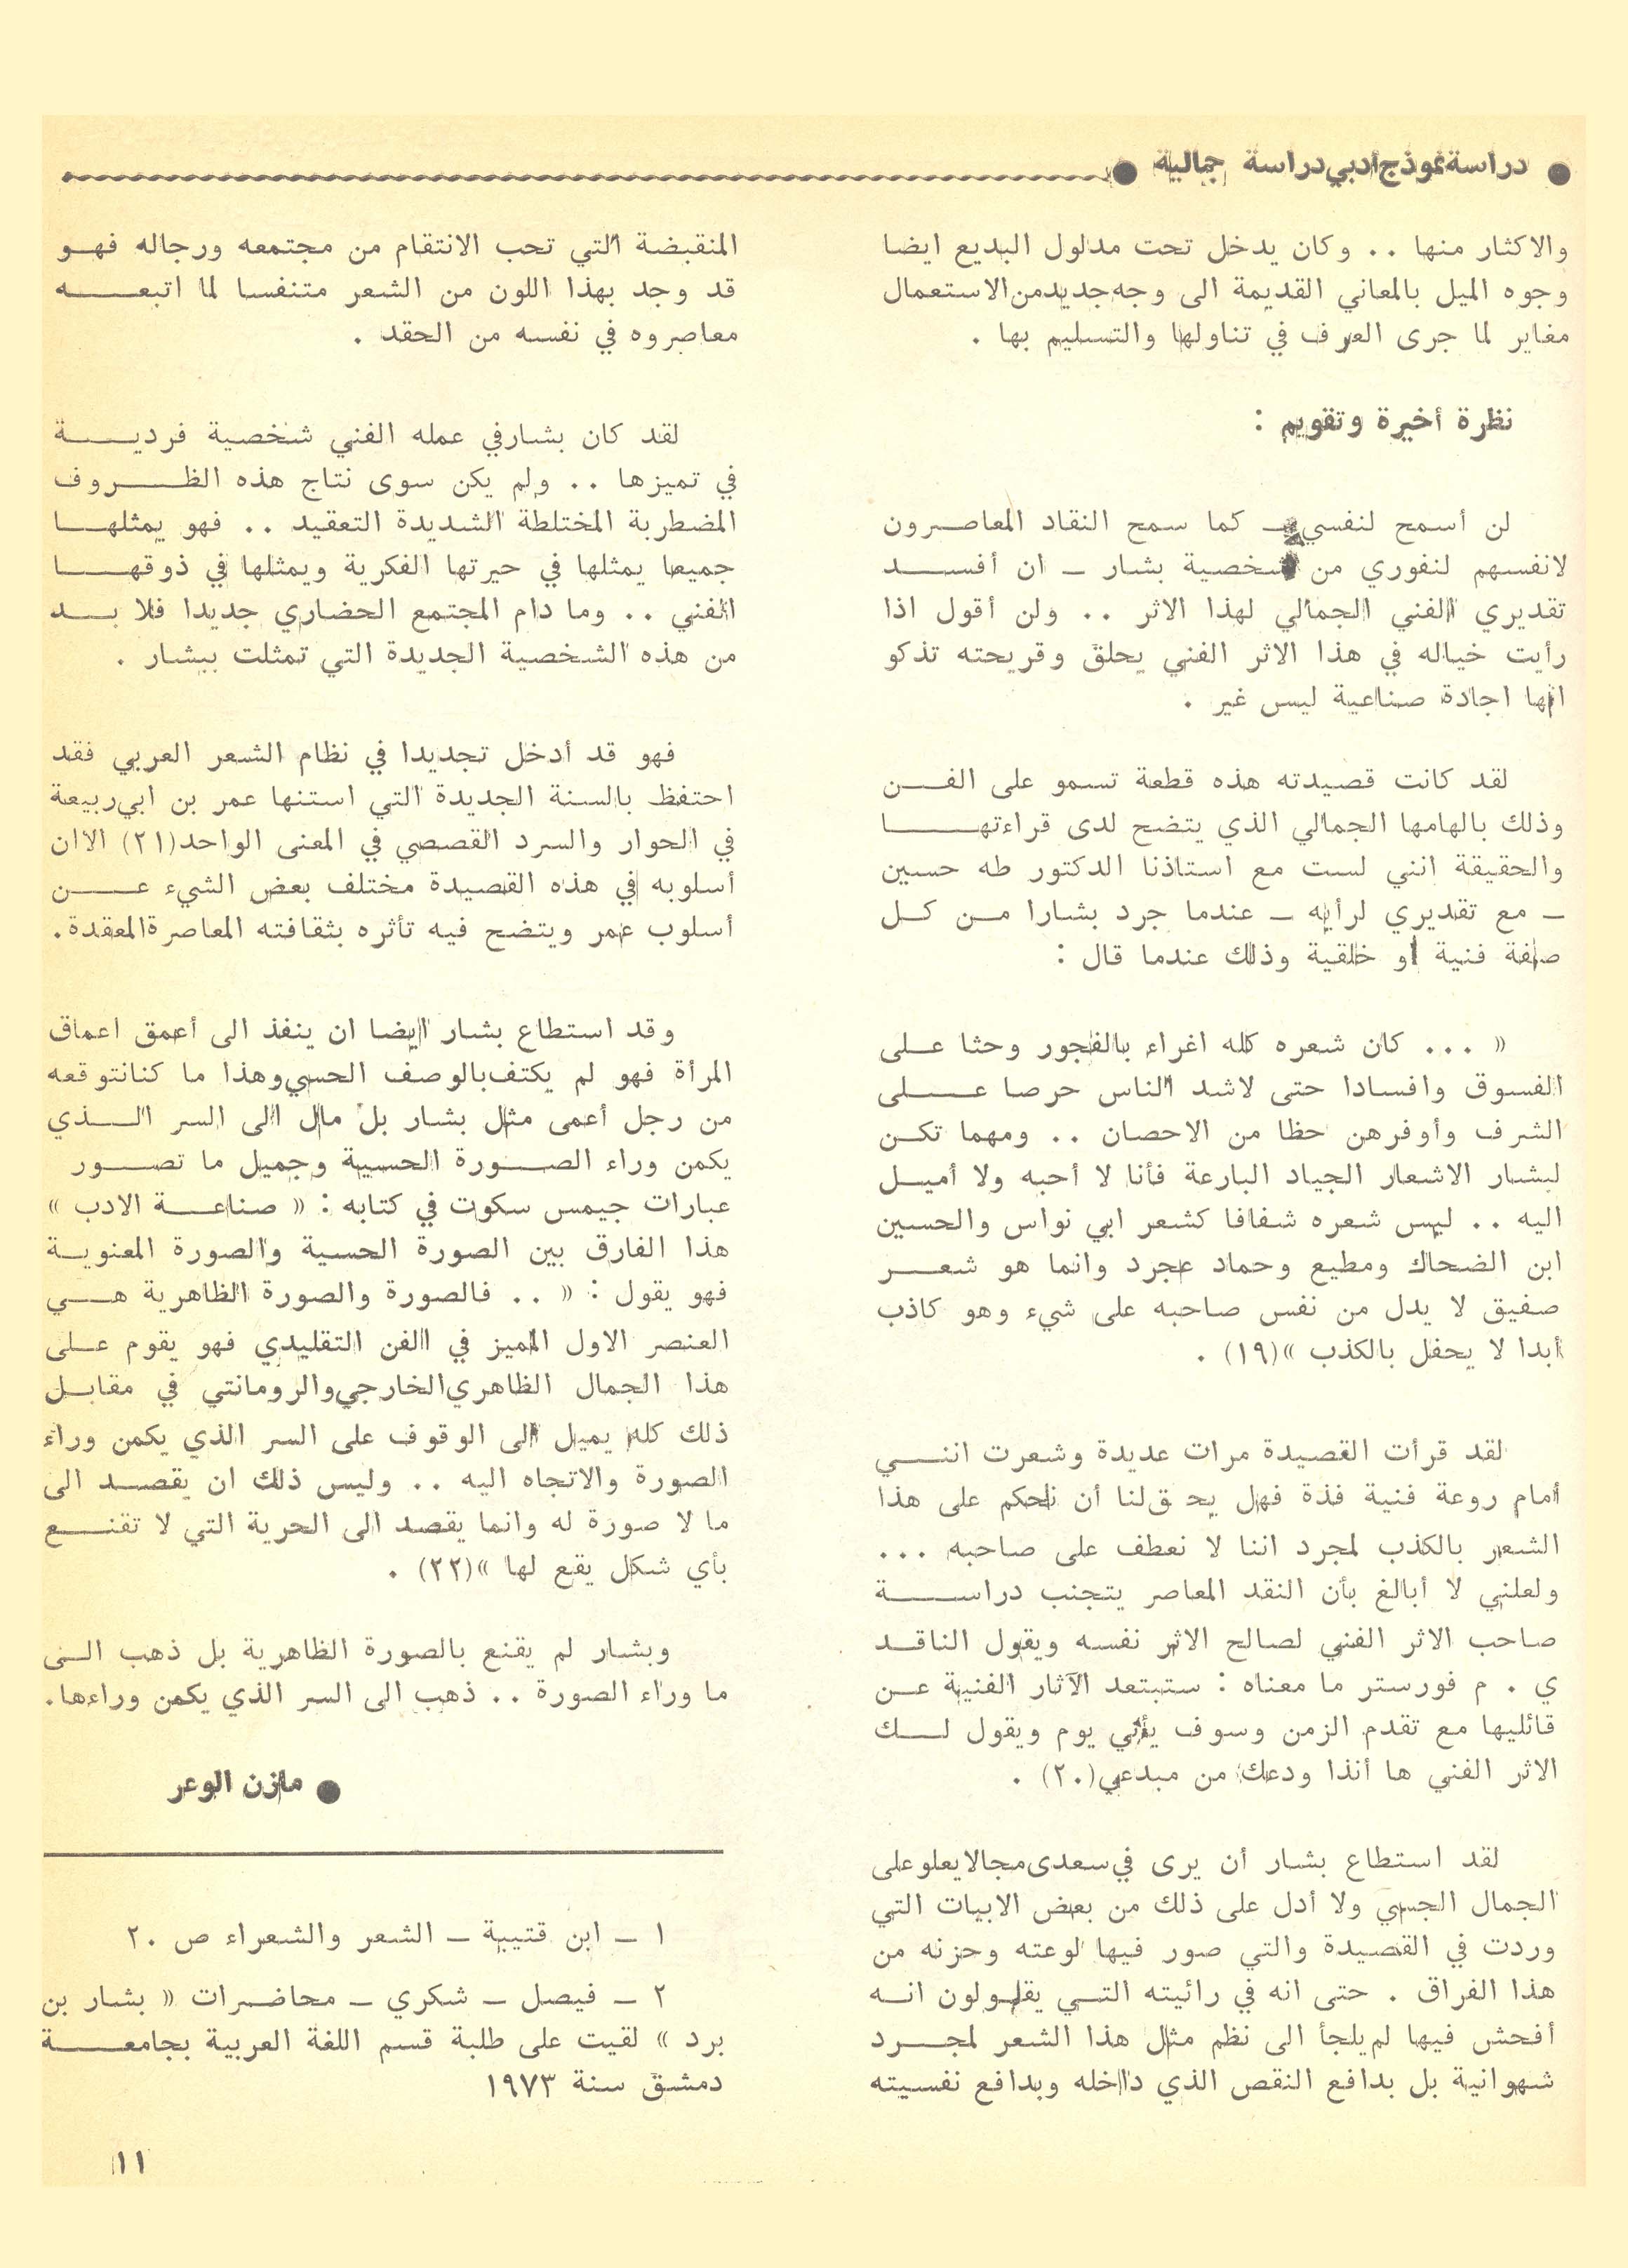 ● دراسة نموذج أدبي دراسة جمالية ●
والاكثار منها .. وكان يدخل تحت مدلول البديع ايضا
وجوه الميل بالمعاني القديمة الى وجه جديد من الاستعمال
مغاير لما جرى العرف في تناولها والتسليم بها .
نظرة أخيرة وتقويم :
لن أسمح لنفسي ـ كما سمح النقاد المعاصرون
لانفسهم لنفوري من شخصية بشار ـ ان أفسد
تقديري الفني الجمالي لهذا الاثر .. ولن أقول اذا
رأيت خياله في هذا الاثر الفني يحلق وقريحته تذكو
انها اجادة صناعية ليس غير .
لقد كانت قصيدته هذه قطعة تسمو على الفن
وذلك بالهامها الجمالي الذي يتضح لدى قراءتها
والحقيقة انني لست مع استاذنا الدكتور طه حسين
ـ مع تقديري لرأيه ـ عندما جرد بشارا من كل
صفة فنية او خلقية وذلك عندما قال :
« ... كان شعره كله اغراء بالفجور وحثا على
الفسوق وافسادا حتى لاشد الناس حرصا على
الشرف وأوفرهن حظا من الاحصان .. ومهما تكن
لبشار الاشعار الجياد البارعة فأنا لا أحبه ولا أميل
اليه .. ليس شعره شفافا كشعر ابي نواس والحسين
ابن الضحاك ومطيع وحماد عجرد وانما هو شعر
صفيق لا يدل من نفس صاحبه على شيء وهو كاذب
أبدا لا يحفل بالكذب »(١٩) .
لقد قرأت القصيدة مرات عديدة وشعرت انني
أمام روعة فنية فذة فهل يحق لنا أن نحكم على هذا
الشعر بالكذب لمجرد اننا لا نعطف على صاحبه ...
ولعلني لا أبالغ بأن النقد المعاصر يتجنب دراسة
صاحب الاثر الفني لصالح الاثر نفسه ويقول الناقد
ي . م فورستر ما معناه : ستبتعد الآثار الفنية عن
قائليها مع تقدم الزمن وسوف يأتي يوم ويقول لك
الاثر الفني ها أنذا ودعك من مبدعي(٢٠) .
لقد استطاع بشار أن يرى في سعدى مجالا يعلو على
الجمال الجسي ولا أدل على ذلك من بعض الابيات التي
وردت في القصيدة والتي صور فيها لوعته وحزنه من
هذا الفراق . حتى انه في رائيته التي يقولون انه
أفحش فيها لم يلجأ الى نظم مثل هذا الشعر لمجرد
شهوانية بل بدافع النقص الذي داخله وبدافع نفسيته
المنقبضة التي تحب الانتقام من مجتمعه ورجاله فهو
قد وجد بهذا اللون من الشعر متنفسا لما اتبعه
معاصروه في نفسه من الحقد .
لقد كان بشار في عمله الفني شخصية فردية
في تميزها .. ولم يكن سوى نتاج هذه الظروف
المضطربة المختلطة الشديدة التعقيد .. فهو يمثلها
جميعا يمثلها في حيرتها الفكرية ويمثلها في ذوقها
الفني .. وما دام المجتمع الحضاري جديدا فلا بد
من هذه الشخصية الجديدة التي تمثلت ببشار .
فهو قد أدخل تجديدا في نظام الشعر العربي فقد
احتفظ بالسنة الجديدة التي استنها عمر بن ابي ربيعة
في الحوار والسرد القصصي في المعنى الواحد(٢١) الا ان
أسلوبه في هذه القصيدة مختلف بعض الشيء عن
أسلوب عمر ويتضح فيه تأثره بثقافته المعاصرة المعقدة.
وقد استطاع بشار ايضا ان ينفذ الى أعمق اعماق
المرأة فهو لم يكتف بالوصف الحسي وهذا ما كنا نتوقعه
من رجل أعمى مثل بشار بل مال الى السر الذي
يكمن وراء الصورة الحسية وجميل ما تصور
عبارات جيمس سكوت في كتابه : « صناعة الادب »
هذا الفارق بين الصورة الحسية والصورة المعنوية
فهو يقول : « .. فالصورة والصورة الظاهرية هي
العنصر الاول المميز في الفن التقليدي فهو يقوم على
هذا الجمال الظاهري الخارجي والرومانتي في مقابل
ذلك كله يميل الى الوقوف على السر الذي يكمن وراء
الصورة والاتجاه اليه .. وليس ذلك ان يقصد الى
ما لا صورة له وانما يقصد الى الحرية التي لا تقنع
بأي شكل يقع لها »(٢٢) .
وبشار لم يقنع بالصورة الظاهرية بل ذهب الى
ما وراء الصورة .. ذهب الى السر الذي يكمن وراءها.
● مازن الوعر
١ ـ ابن قتيبة ـ الشعر والشعراء ص ٢٠
٢ ـ فيصل ـ شكري ـ محاضرات « بشار بن
برد » لقيت على طلبة قسم اللغة العربية بجامعة
دمشق سنة ١٩٧٣
١١